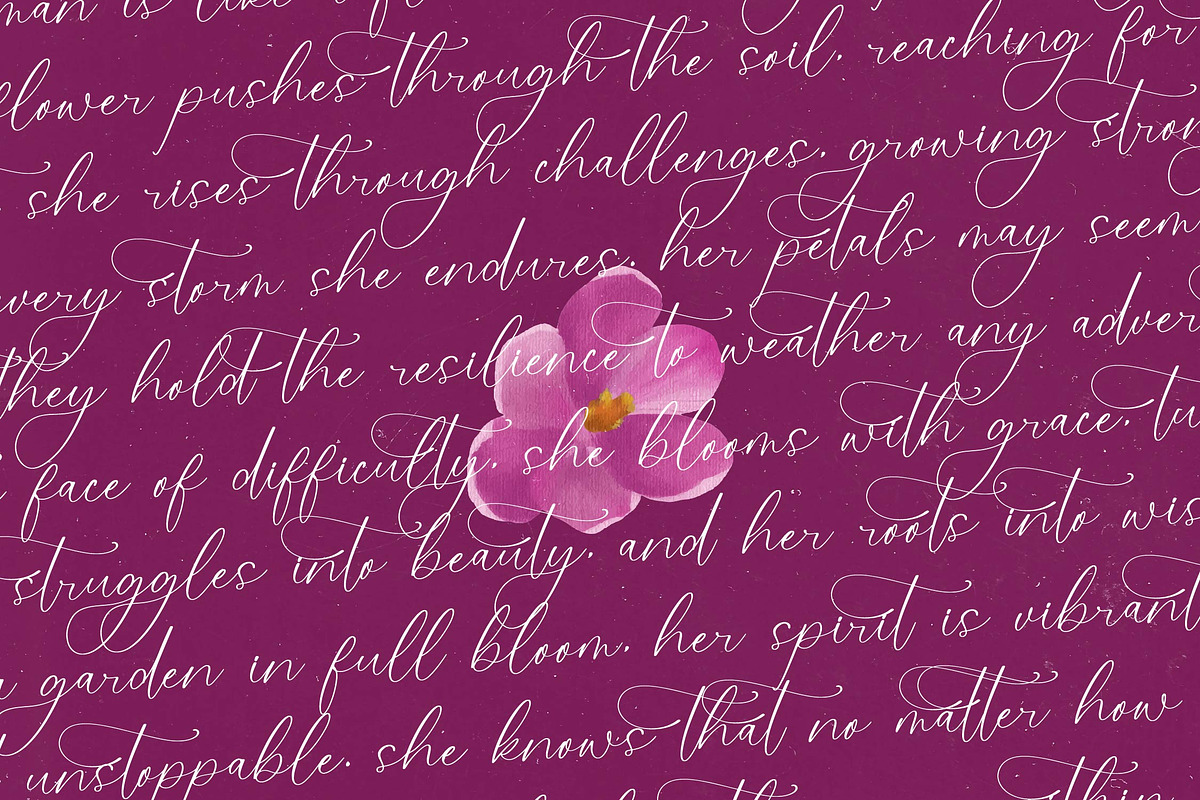 man is like
flower pushes through the soil. reaching for
she rises through challenges. growing
storm she endures. her petals may seem
they hold the resilience to weather any
face of difficulty. she blooms with grace.
struggles into beauty. and her roots into
garden in full bloom. her spirit is vibrant
unstoppable. she knows that no matter how